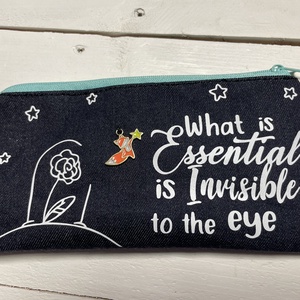 What is
Essential
is Invisible
to the eye